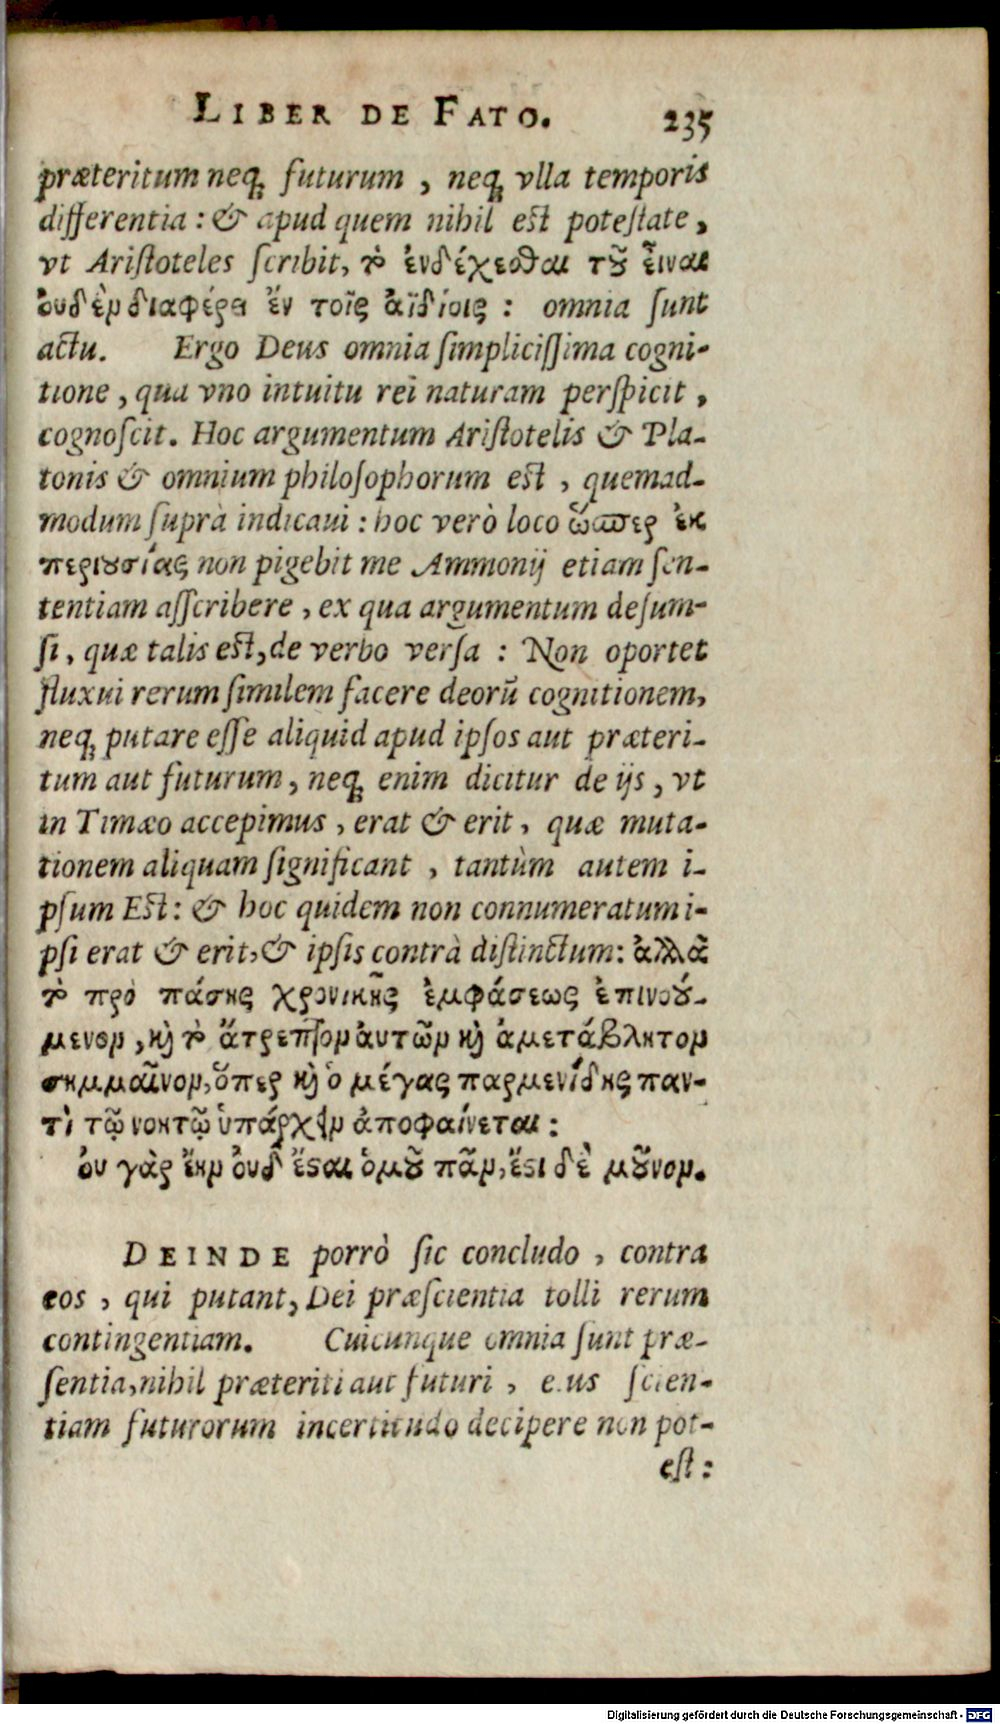 LIBER DE FATO. 235
præteritum neq; futurum, neq; vlla temporis
differentia: & apud quem nihil est potestate,
vt Aristoteles scribit, τὸ ἐνδέχεσθαι τοῦ εἶναι
οὐδὲν διαφέρει ἔν τοῖς ἀϊδίοις: omnia sunt
actu. Ergo Deus omnia simplicissima cogni-
tione, qua vno intuitu rei naturam perspicit,
cognoscit. Hoc argumentum Aristotelis & Pla-
tonis & omnium philosophorum est, quemad-
modum suprà indicaui: hoc verò loco ὥσπερ ἐκ
περιουσίας non pigebit me Ammonij etiam sen-
tentiam asscribere, ex qua argumentum desum-
si, quæ talis est, de verbo versa: Non oportet
fluxui rerum similem facere deorũ cognitionem,
neq; putare esse aliquid apud ipsos aut præteri-
tum aut futurum, neq; enim dicitur de ijs, vt
in Timæo accepimus, erat & erit, quæ muta-
tionem aliquam significant, tantùm autem i-
psum Est: & hoc quidem non connumeratum i-
psi erat & erit, & ipsis contrà distinctum: ἀλλὰ
τὸ πρὸ πάσης χρονικῆς ἐμφάσεως ἐπινού-
μενον, καὶ τὸ ἄτρεπτον αὐτῶν καὶ ἀμετάβλητον
σημμαῖνον, ὅπερ καὶ ὁ μέγας παρμενίδης παν-
τὶ τῷ νοητῷ ὑπάρχειν ἀποφαίνεται:
οὐ γὰρ ἔην οὐδ' ἔσται ὁμοῦ πᾶν, ἔστι δὲ μοῦνον.
DEINDE porrò sic concludo, contra
eos, qui putant, Dei præscientia tolli rerum
contingentiam. Cuicunque omnia sunt præ-
sentia, nihil præteriti aut futuri, eius scien-
tiam futurorum incertitudo decipere non pot-
est:
Digitalisierung gefördert durch die Deutsche Forschungsgemeinschaft - DFG